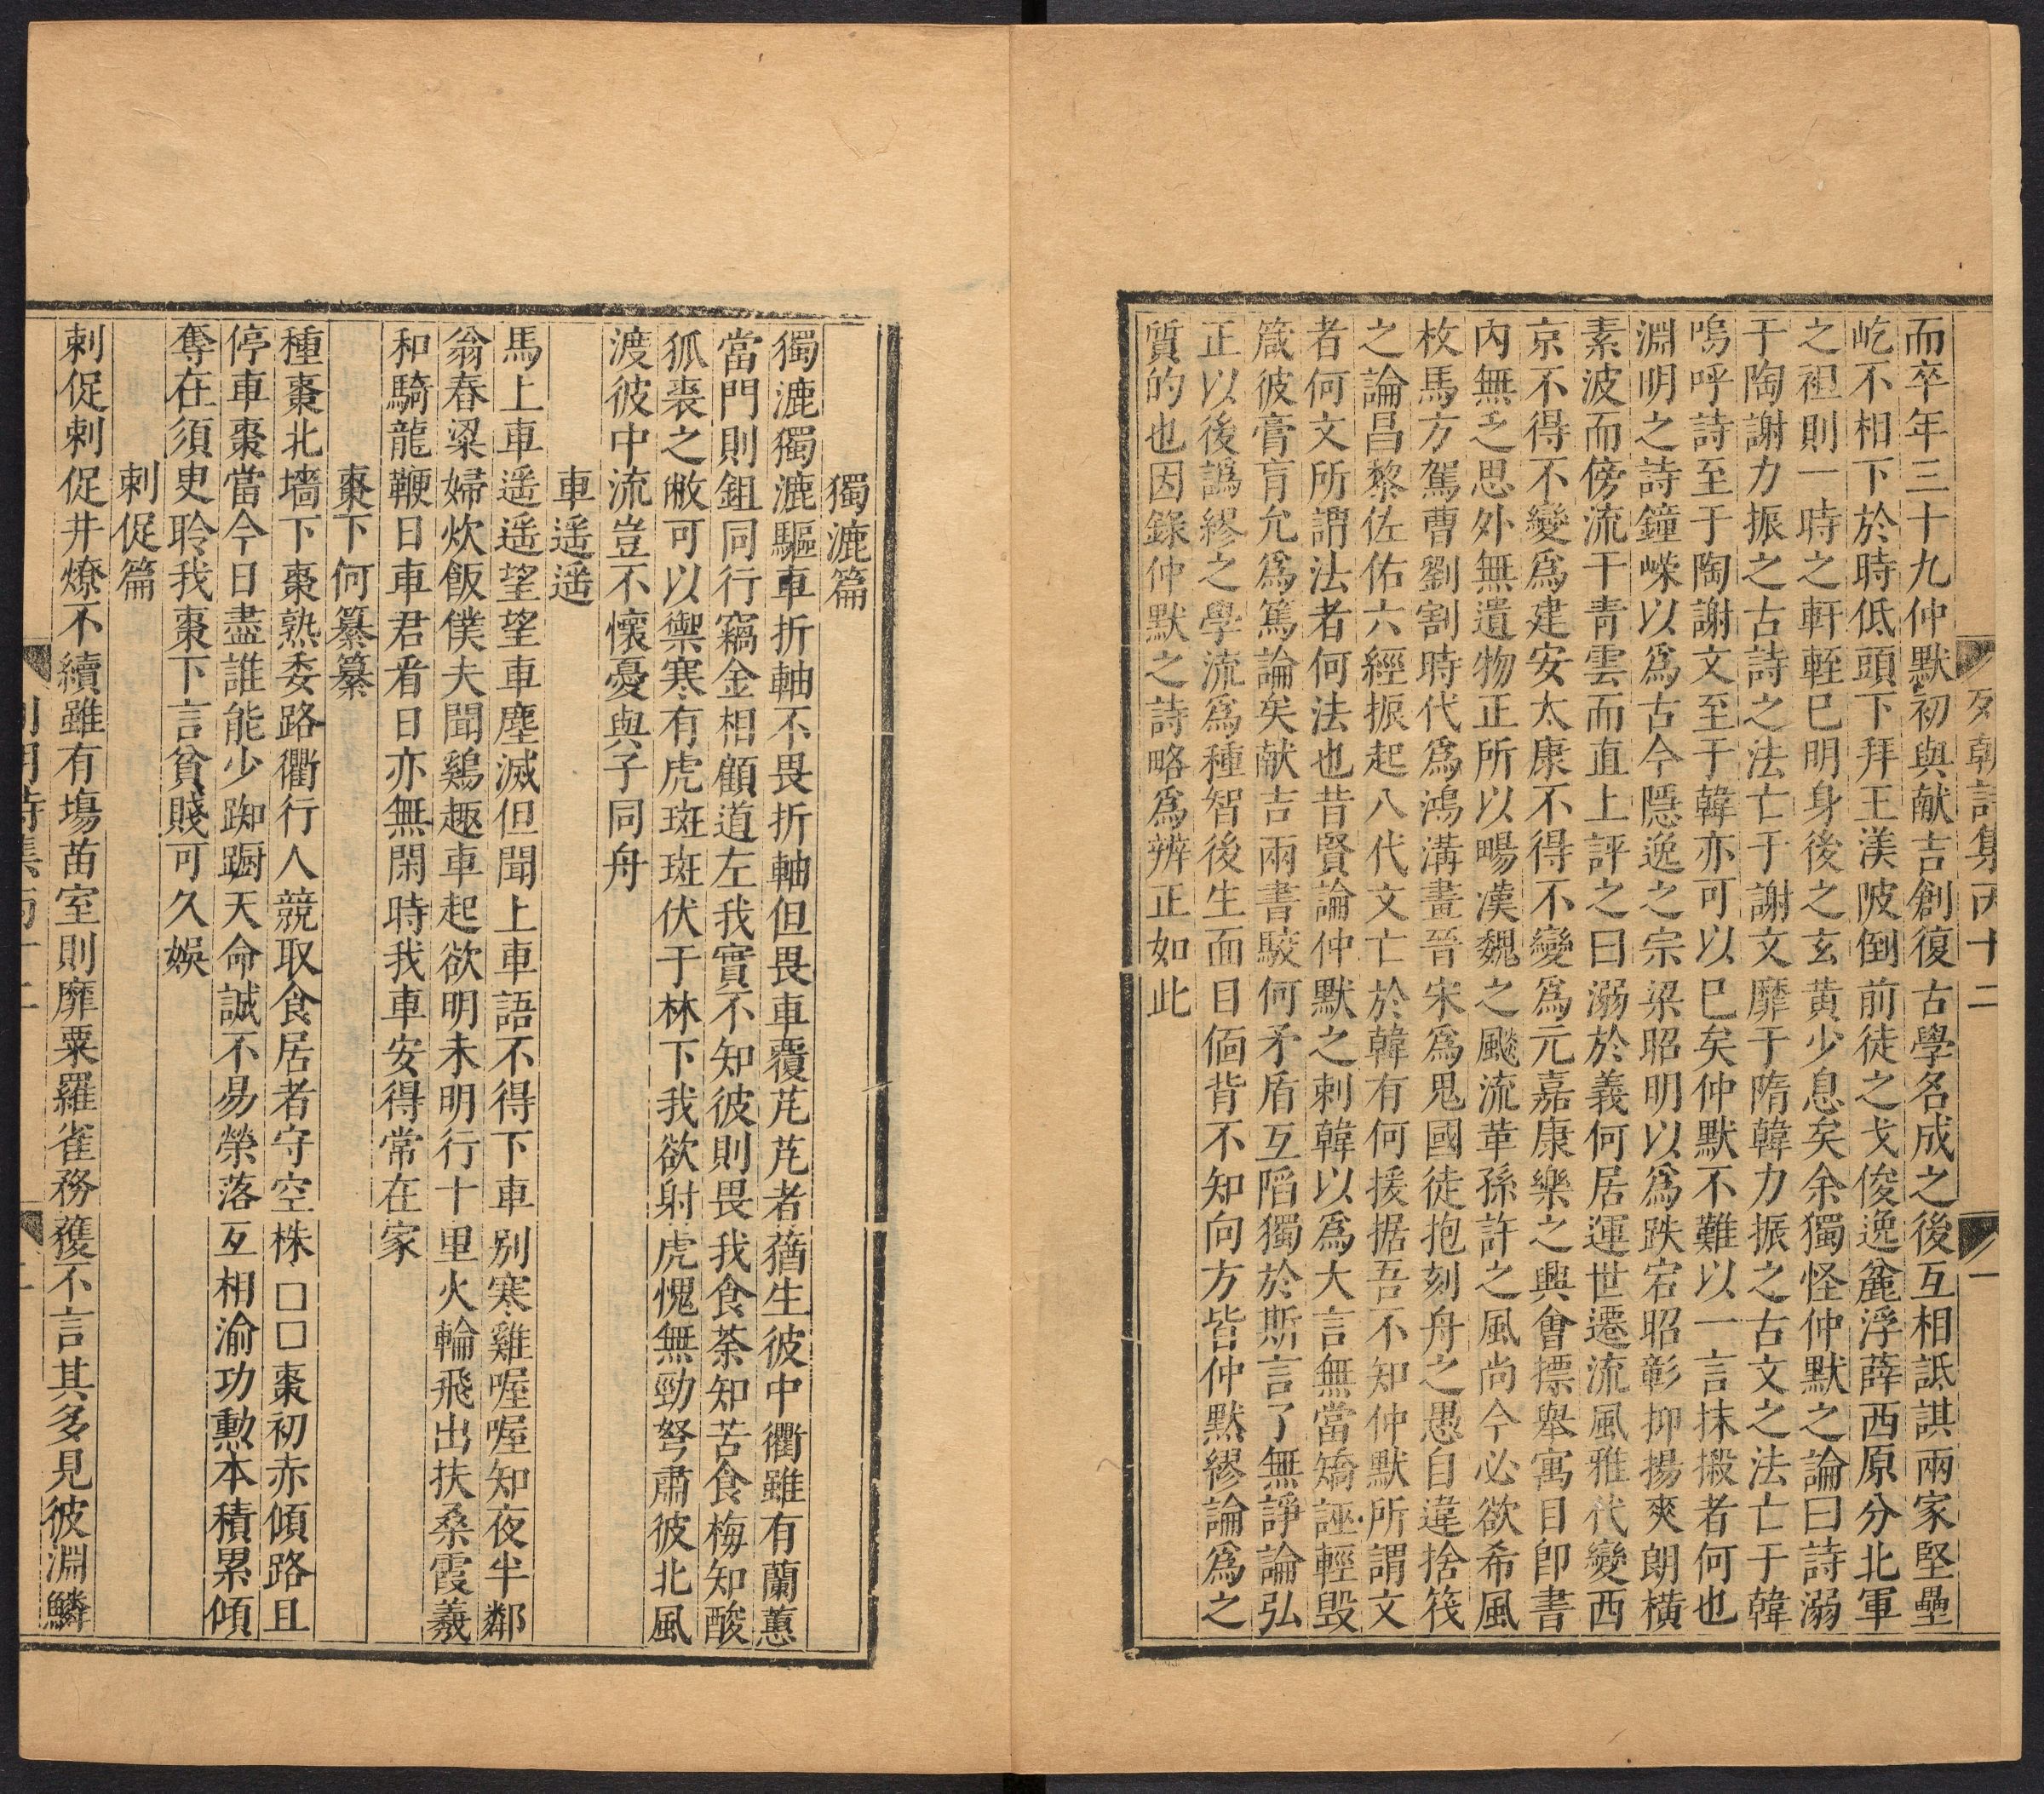 列朝詩集丙十二
一
而卒年三十九仲默初與献吉創復古學名成之後互相詆諆兩家堅壘
屹不相下於時低頭下拜王渼陂倒前徒之戈俊逸麄浮薛西原分北軍
之袒則一時之軒輊已明身後之玄黄少息矣余獨怪仲默之論曰詩溺
于陶謝力振之古詩之法亡于謝文靡于隋韓力振之古文之法亡于韓
嗚呼詩至于陶謝文至于韓亦可以已矣仲默不難以一言抹摋者何也
淵明之詩鐘嶸以爲古今隱逸之宗梁昭明以爲跌宕昭彰抑揚爽朗横
素波而傍流干青雲而直上評之曰溺於義何居運世遷流風雅代變西
京不得不變爲建安太康不得不變爲元嘉康樂之興會摽舉寓目卽書
内無乏思外無遺物正所以暢漢魏之飈流革孫許之風尚今必欲希風
枚馬方駕曹劉割時代爲鴻溝畫晉宋爲鬼國徒抱刻舟之愚自違捨筏
之論昌黎佐佑六經振起八代文亡於韓有何援据吾不知仲默所謂文
者何文所謂法者何法也昔賢論仲默之刺韓以爲大言無當矯誣輕毁
箴彼膏肓允爲篤論矣献吉兩書駮何矛盾互陷獨於斯言了無諍論弘
正以後譌繆之學流爲種智後生面目偭背不知向方皆仲默繆論爲之
質的也因錄仲默之詩略爲辨正如此
獨漉篇
獨漉獨漉驅車折軸不畏折軸但畏車覆芃芃者蕕生彼中衢雖有蘭蕙
當門則鉏同行竊金相顧道左我實不知彼則畏我食荼知苦食梅知酸
狐裘之敝可以禦寒有虎斑斑伏于林下我欲射虎愧無勁弩肅彼北風
渡彼中流豈不懷憂與子同舟
車遥遥
馬上車遥遥望望車塵滅但聞上車語不得下車別寒雞喔喔知夜半鄰
翁舂粱婦炊飯僕夫聞鷄趣車起欲明未明行十里火輪飛出扶桑霞羲
和騎龍鞭日車君看日亦無閑時我車安得常在家
棗下何纂纂
種棗北墻下棗熟委路衢行人競取食居者守空株□□棗初赤傾路且
停車棗當今日盡誰能少踟蹰天命誠不易榮落互相渝功勲本積累傾
奪在須臾聆我棗下言貧賤可久娛
刺促篇
刺促刺促井燎不續雖有塲苗室則靡粟羅雀務獲不言其多見彼淵鱗